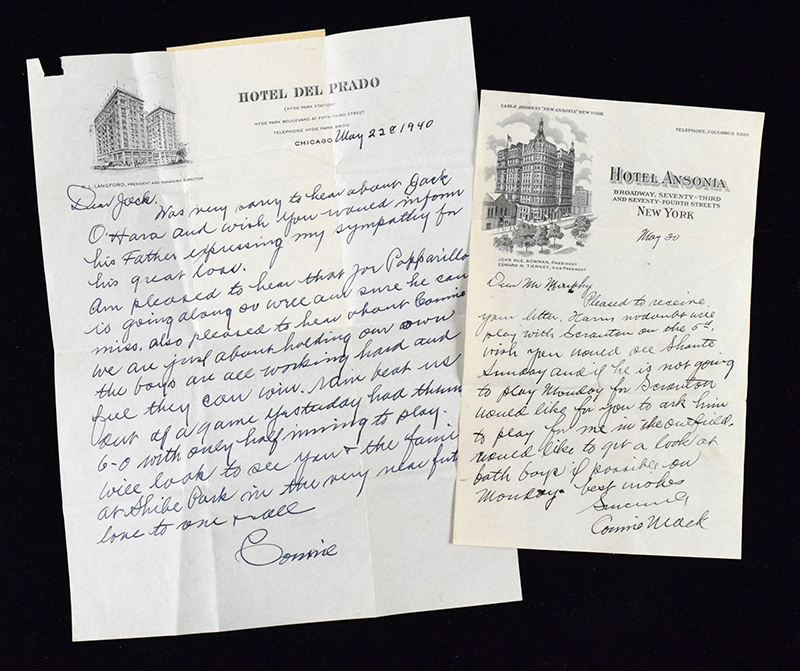 HOTEL DEL PRADO
(HYDE PARK STATION)
HYDE PARK BOULEVARD AT FIFTY-THIRD STREET
TELEPHONE HYDE PARK 9600
CHICAGO May 22d 1940
LANGFORD, PRESIDENT AND MANAGING DIRECTOR
Dear Jack.
Was very sorry to hear about Jack
O'Hara and wish you would inform
his Father expressing my sympathy for
his great loss.
Am pleased to hear that Joe Papparillo
is going along so well am sure he can
miss, also pleased to hear about Connie
we are just about holding our own
the boys are all working hard and
feel they can win. Rain beat us
out of a game yesterday had them
6-0 with only half inning to play.
Will look to see you & the fami
at Shibe Park in the very near fut
love to one & all
Connie
CABLE ADDRESS "NEW ANSONIA" NEW YORK
TELEPHONE, COLUMBUS
HOTEL ANSONIA
BROADWAY, SEVENTY-THIRD
AND SEVENTY-FOURTH STREETS
NEW YORK
JOHN McE. BOWMAN, PRESIDENT
EDWARD M. TIERNEY, VICE PRESIDENT
May 30
Dear Mr Murphy
Pleased to receive
your letter, Harris no doubt will
play with Scranton on the 5th,
wish you would see Shantz
Sunday and if he is not going
to play Monday for Scranton
would like for you to ask him
to play for me in the outfield.
would like to get a look at
both boys if possible on
Monday. best wishes
Sincerely
Connie Mack